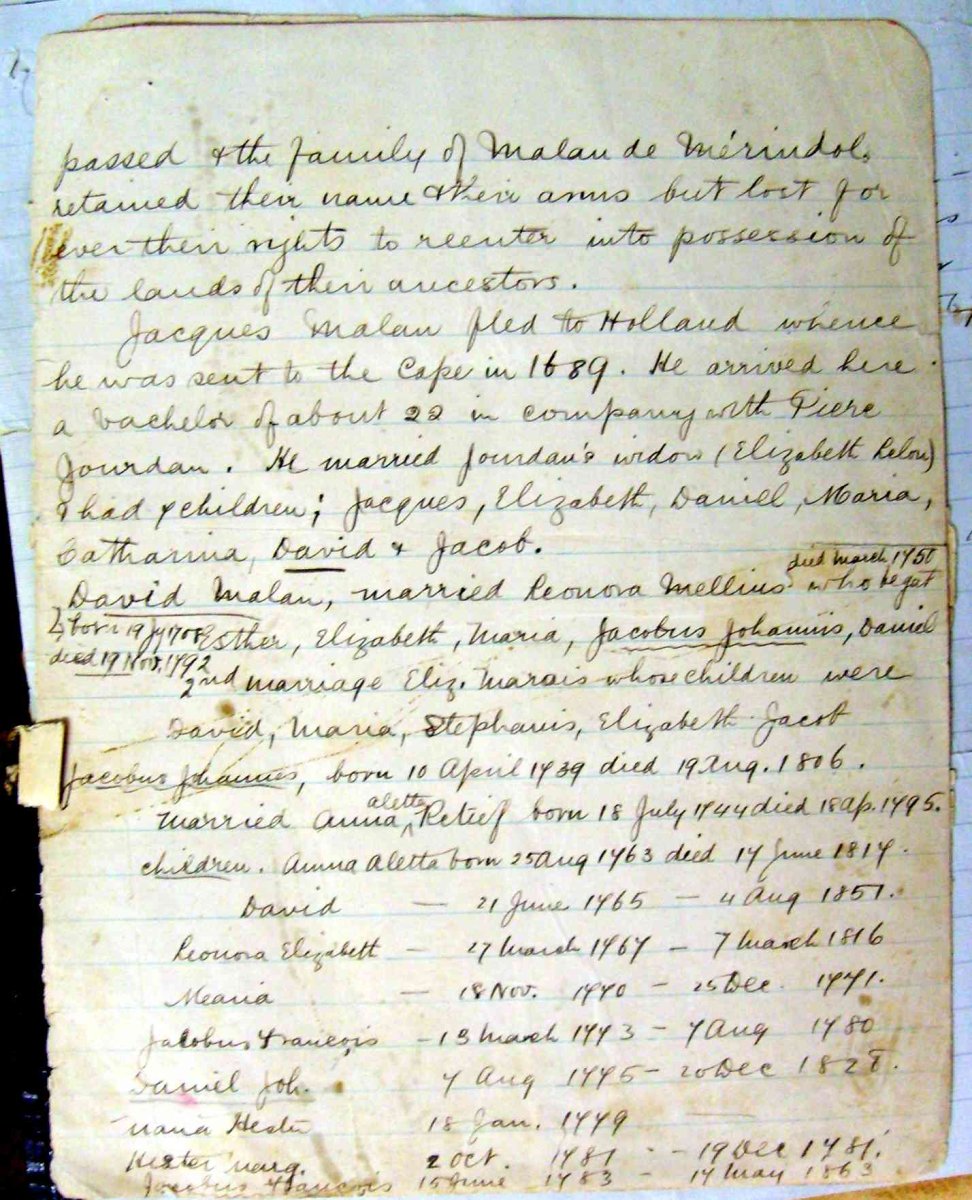 passed & the family of Malan de Mérindol.
retained their name & their arms but lost for
ever their rights to reenter into possession of
the lands of their ancestors.
Jacques Malan fled to Holland whence
he was sent to the Cape in 1689. He arrived here
a bachelor of about 22 in company with Pierc
Jourdan. He married Jourdan's widow (Elizabeth Lelon)
& had 7 children; Jacques, Elizabeth, Daniel, Maria,
Catharina, David & Jacob.
died March 1750
David Malan, married Leonora Mellius who begat
born 19 Jy 1708 Esther, Elizabeth, Maria, Jacobus Johannis, Daniel
died 19 Nov. 1792
2nd marriage Eliz. Marais whose children were
David, Maria, Stephanis, Elizabeth Jacob
Jacobus Johannes, born 10 April 1739 died 19 Aug. 1806.
Married Anna aletta Retief born 18 July 1744 died 18 Ap. 1795.
children. Anna Aletta born 25 Aug 1763 died 17 June 1817.
David — 21 June 1765 — 4 Aug 1851.
Leonora Elizabeth — 27 March 1767 — 7 March 1816
Maria — 18 Nov. 1770 — 25 Dec. 1771.
Jacobus Francois — 13 March 1773 — 7 Aug 1780
Daniel Joh. 7 Aug 1775 — 20 Dec 1828.
Maria Hester 18 Jan. 1779 —
Hester Marg. 2 Oct. 1781 — 19 Dec 1781.
Jacobus Francois 15 June 1783 — 17 May 1863